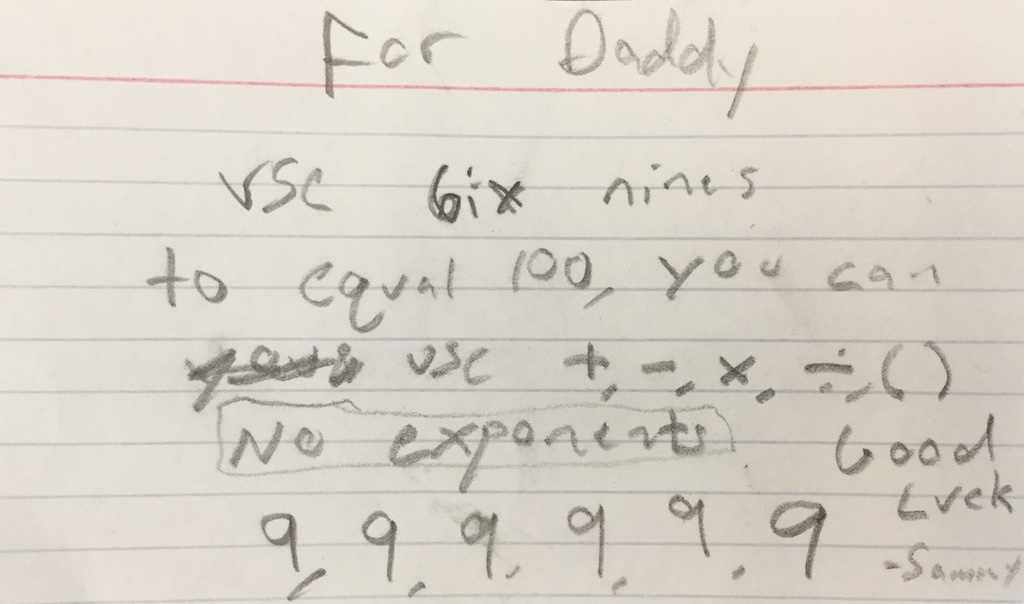 For Daddy
Use six nines
to equal 100, you can
use +, -, x, ÷, ( )
No exponents Good
Luck
9, 9, 9, 9, 9, 9
-Sammy